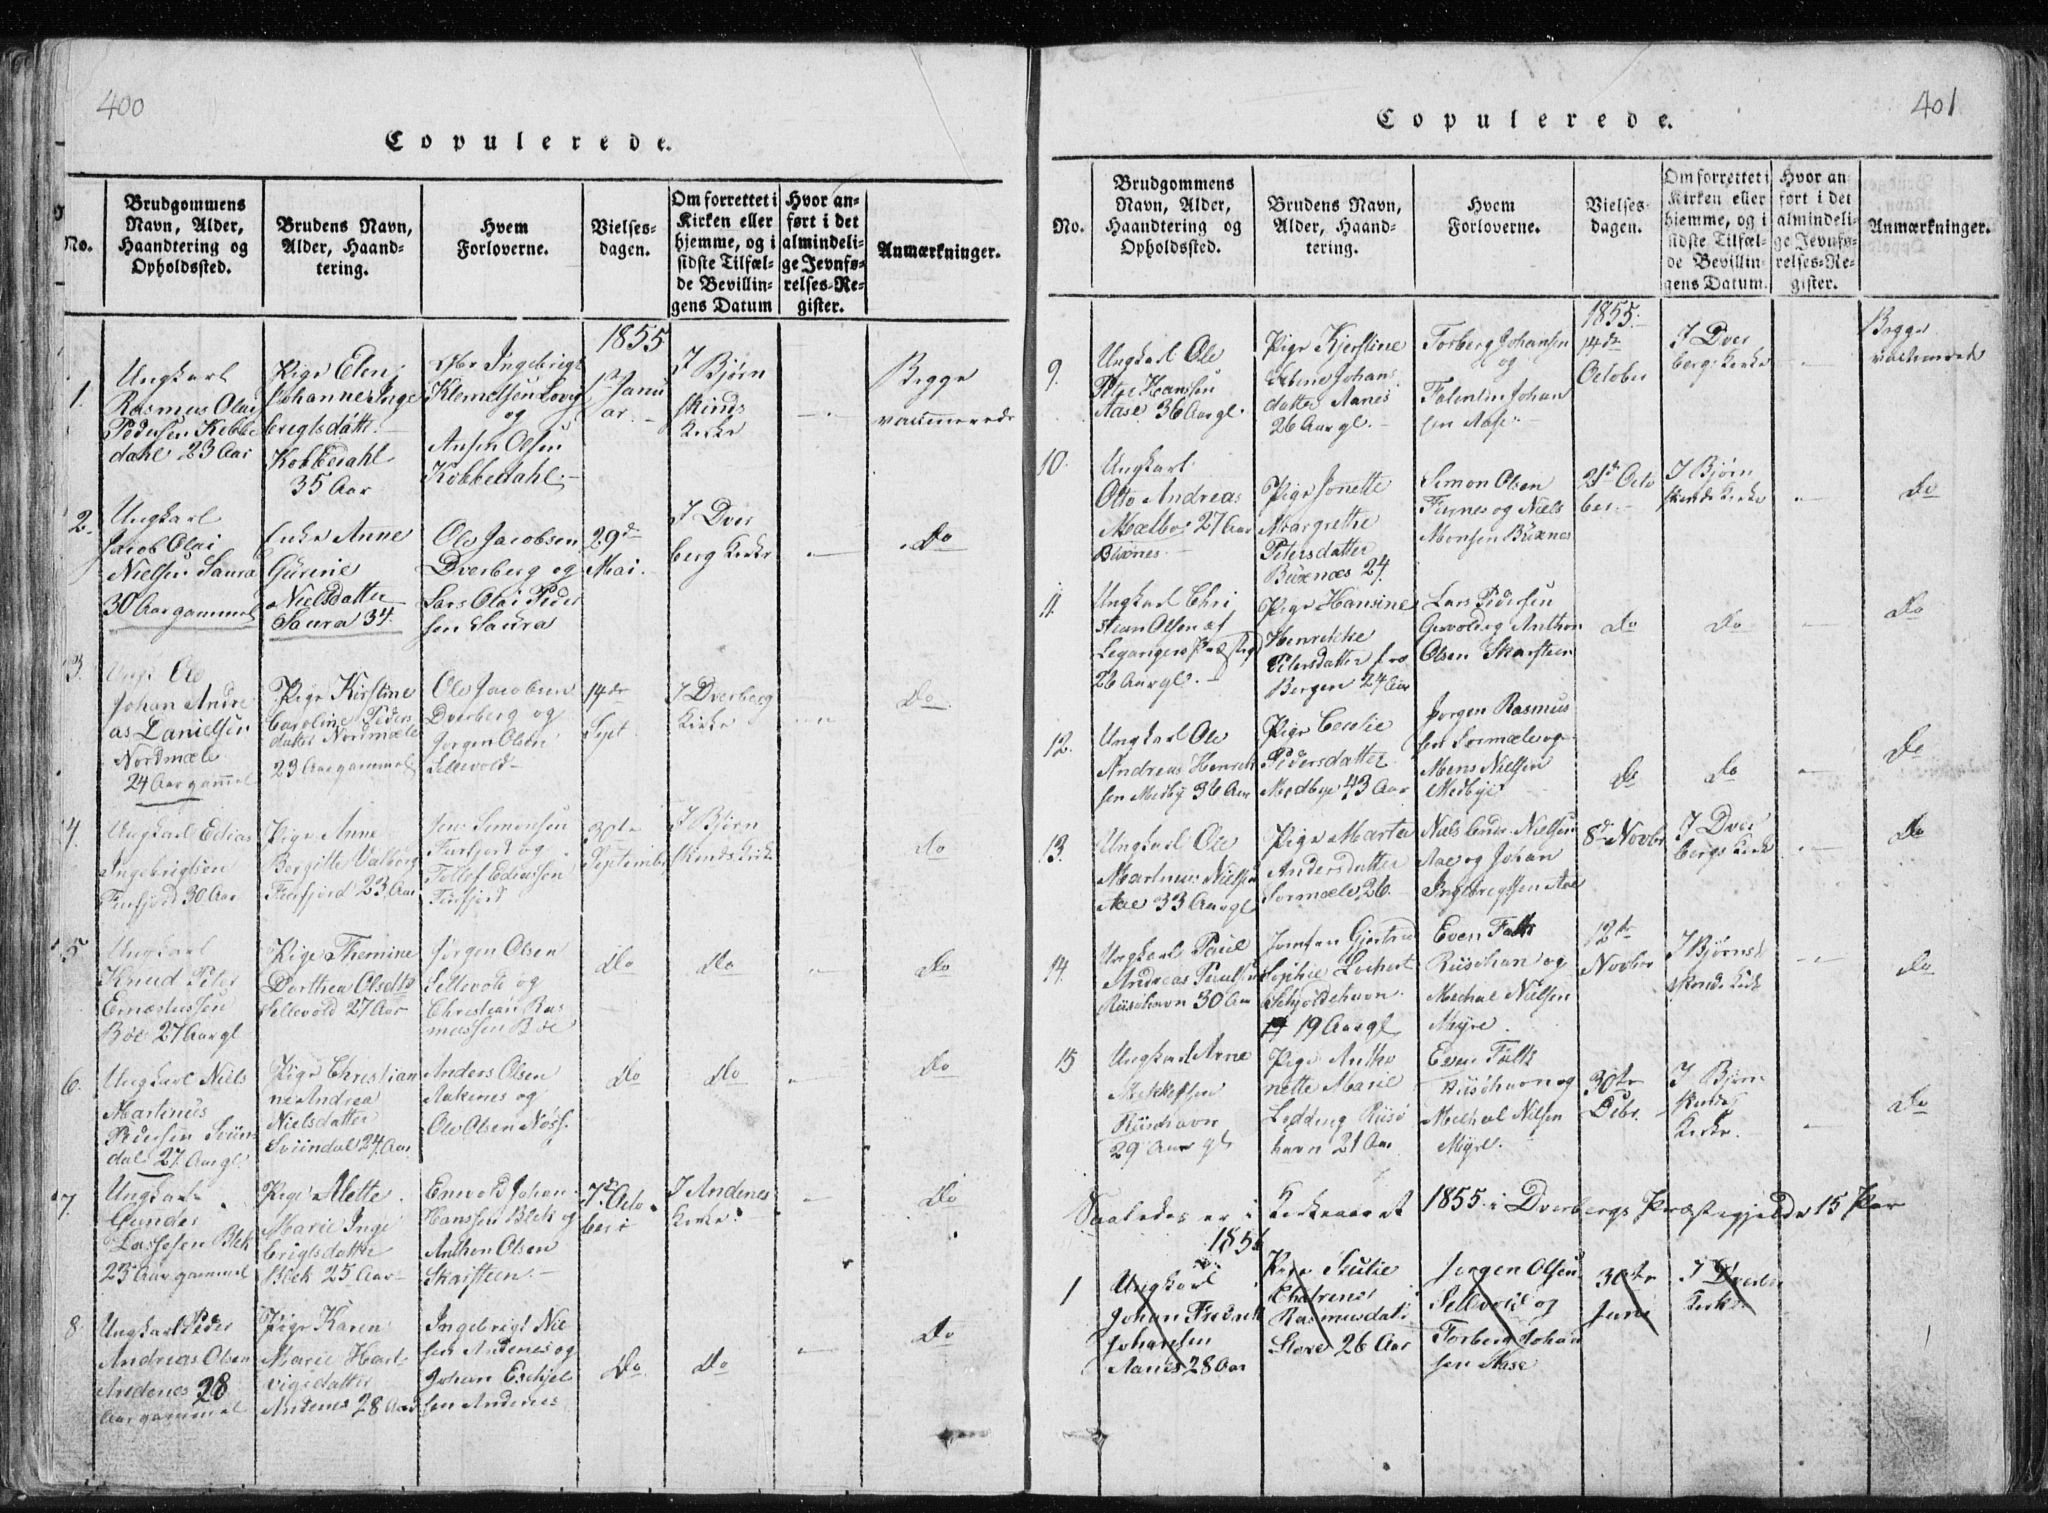 400
Copulerede.
No.
Brudgommens
Navn, Alder,
Haandtering og
Opholdssted.
Brudens Navn,
Alder, Haand-
tering.
Hvem
Forloverne.
Vielses-
dagen.
Om forrettet i
Kirken eller
hjemme, og i
sidste Tilfæl-
de Bevillin-
gens Datum
Hvor an-
ført i det
almindeli-
ge Jevnfø-
relses-Re-
gister.
Anmærkninger.
1855
1.
Ungkarl
Rasmus Olai
Pedersen Kobbe
dahl 23 Aar
Pige Elen
Johanne Inge
brigtsdatt.
Kobbedahl
35 Aar
Ingebrigt
Klemetsen Lovig
og
Ansen Olsen
Kobbedahl.
1ste Janu
ar.
I Bjørn
skinds
Kirke
Begge
vaccinerede
2.
Ungkarl
Jacob Olai
Nielsen Saura
30 Aar gammel
Enke Anne
Gurine
Nielsdatter
Saura 34.
Ole Jacobsen
Dverberg og
Lars Olai Peder
sen Saura
29de
Mai.
I Dver
berg Kirke
Do
3.
Ungk. Ole
Johan Andre
as Danielsen
Nordmæle
24 Aar gammel
Pige Kirstine
Caroline Peders
datter Normæle
23 Aar gammel
Ole Jacobsen
Dverberg og
Jørgen Olsen
Sellevold
14de
Sept
I Dverberg
Kirke
Do
4.
Ungkarl Edias
Ingebrigtsen
Finfjord 30 Aar
Pige Anne
Bergitte Valborg
Finfjord 23 Aar
Jens Simonsen
Finfjord og
Tollef Ediassen
Finfjord
30te
September
I Bjørn
skinds Kirke
Do
5
Ungkarl
Knud Peter
Ernæstussen
Bøe 27 Aar gl
Pige Themine
Dorthea Olsdtr
Sellevold 27 Aar
Jørgen Olsen
Sellevold og
Christian Ras
mussen Bøe
Do
Do
Do
6.
Ungkarl Niels
Martinus
Pedersen Svin
dal 27 Aar gl.
Pige Christian
ne Andrea
Nielsdatter
Svindal 24 Aar
Anders Olsen
Aakenes og
Ole Olsen Nøss.
Do
Do
Do
7.
Ungkarl
Gunder
Lassesen Blek
23 Aar gammel
Pige Alette
Marie Inge
brigtsdatter
Blek 25 Aar
Enevold Johan
Hanssen Blek og
Anthon Olsen
Skarsteen.
7de Octo
ber
I Andenes
Kirke.
Do
8.
Ungkarl Peder
Andreas Olsen
Andenes 28
Aar gammel
Pige Karen
Marie Hart
vigsdatter
Andenes 28 Aar
Ingebrigt Nie
sen Andenes og
Johan Eschjel
sen Andenes
Do
Do
Do
401
Copulerede.
No.
Brudgommens
Navn, Alder,
Haandtering og
Opholdssted.
Brudens Navn,
Alder, Haand-
tering.
Hvem
Forloverne.
Vielses-
dagen.
Om forrettet i
Kirken eller
hjemme, og i
sidste Tilfæl-
de Bevillin-
gens Datum.
Hvor an-
ført i det
almindeli-
ge Jevnfø-
relses-Re-
gister.
Anmærkninger.
1855.
9.
Ungkarl Ole
Peter Hanssen
Aase 36 Aar gl.
Pige Kjerstine
Johans
datter Aanes
26 Aar gl.
Torberg Johansen
og
Falentin Johan
sen Aase
14de
October
I Dver
berg Kirke
Begge
vaccinerede
10.
Ungkarl
Otto Andreas
Mælbo 27 Aar
Buxnes
Pige Jonette
Margrethe
Petersdatter
Buxnæs 24.
Simon Olsen
Finnes og Niels
Monsen Buxnes
21de Octo
ber.
I Bjørn
skinds Kirke
Do
11.
Ungkarl Chri
stian Olsen af
Leganger Præstegj
26 Aar gl.
Pige Hansine
Henrikke
Petersdatter fra
Bergen 27 Aar
Lars Pedersen
og Anthon
Olsen Skarsteen
Do
Do
Do
12.
Ungkarl Ole
Andreas Henrik
sen Medby 36 Aar
Pige Cecelie
Pedersdatter
Medbye 43 Aar
Jørgen Rasmus
sen Sormæle og
Mons Nielsen
Medbye
Do
Do
Do
13.
Ungkarl Ole
Martinus Nielsen
Aae 33 Aar gl
Pige Marta
Andersdatter
Sormæle 26
Niels Nielsen
Aae og Johan
Ingebregtsen Aae
8de Novbr
I Dver
bergs Kirke
Do
14.
Ungkarl Paul
Andreas Paulsen
Riisøhavn 30 Aar
Jomfru Gjertrud
Sophie Lochert
Schjoldehavn
19 Aar gl
Even Falk
Riisøhavn og
Mechal Nielsen
Myre.
12te
Novbr
I Bjørns
skinds Kirk
Do
15
Ungkarl Arne
Mekkelsen
Riisøhavn
29 Aar gl
Pige Antho
nette Marie
Ledding Riisø
havn 21 Aar
Even Falk
Riisøhavn og
Mechal Nilsen
Myre.
30te
Debr.
I Bjørn
skinds
Kirke.
Do
Saaledes er i Kirkeaaret 1855 i Dverbergs Præstegjeld 15 Par
1856
1
Ungkarl
Johan Fredrik
Johansen
Aanes 28 Aar
Pige
Rasmusdat
Stove 26 Aar
Jørgen Olsen
Sellevold og
Torberg Johan
sen Aase
30te
Juni
I Dverber
Kirke